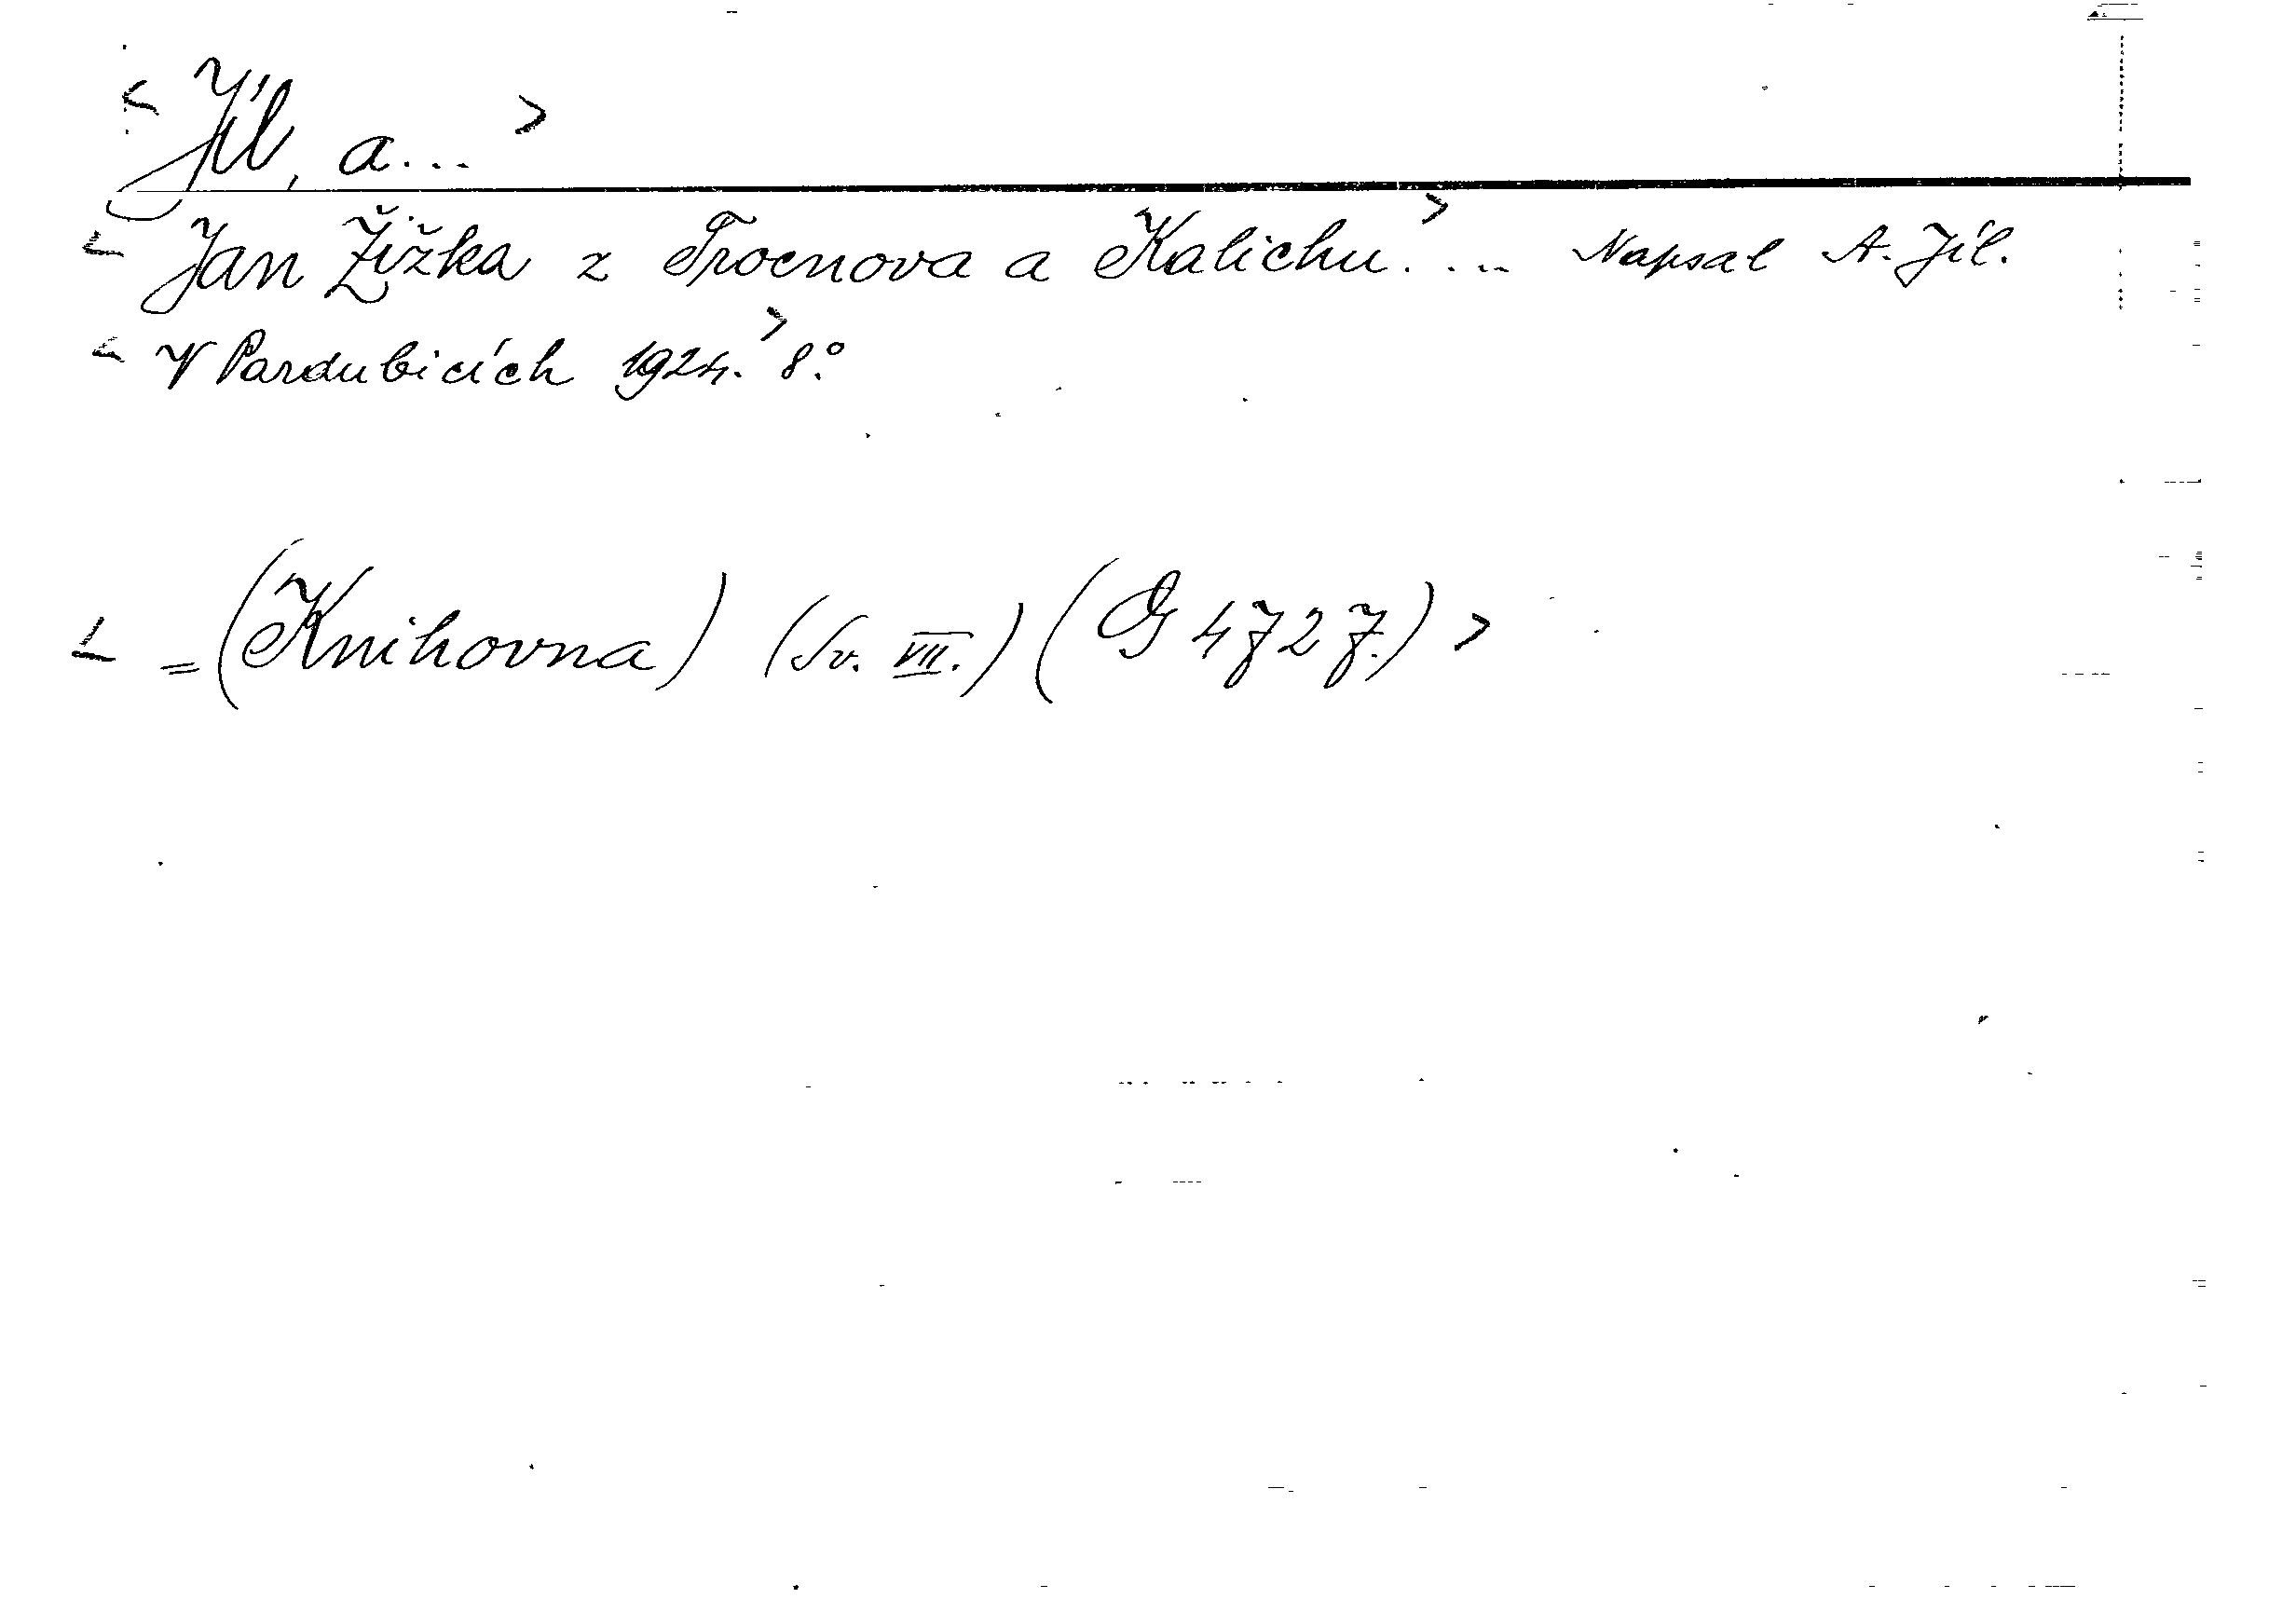 < Jíl, a... >
< Jan Žižka z Trocnova a Kalichu. > ... Napsal A. Jíl.
< V Pardubicích 1924. > 8.°
< = (Knihovna) (Sv. VII.) (G 4727.) >